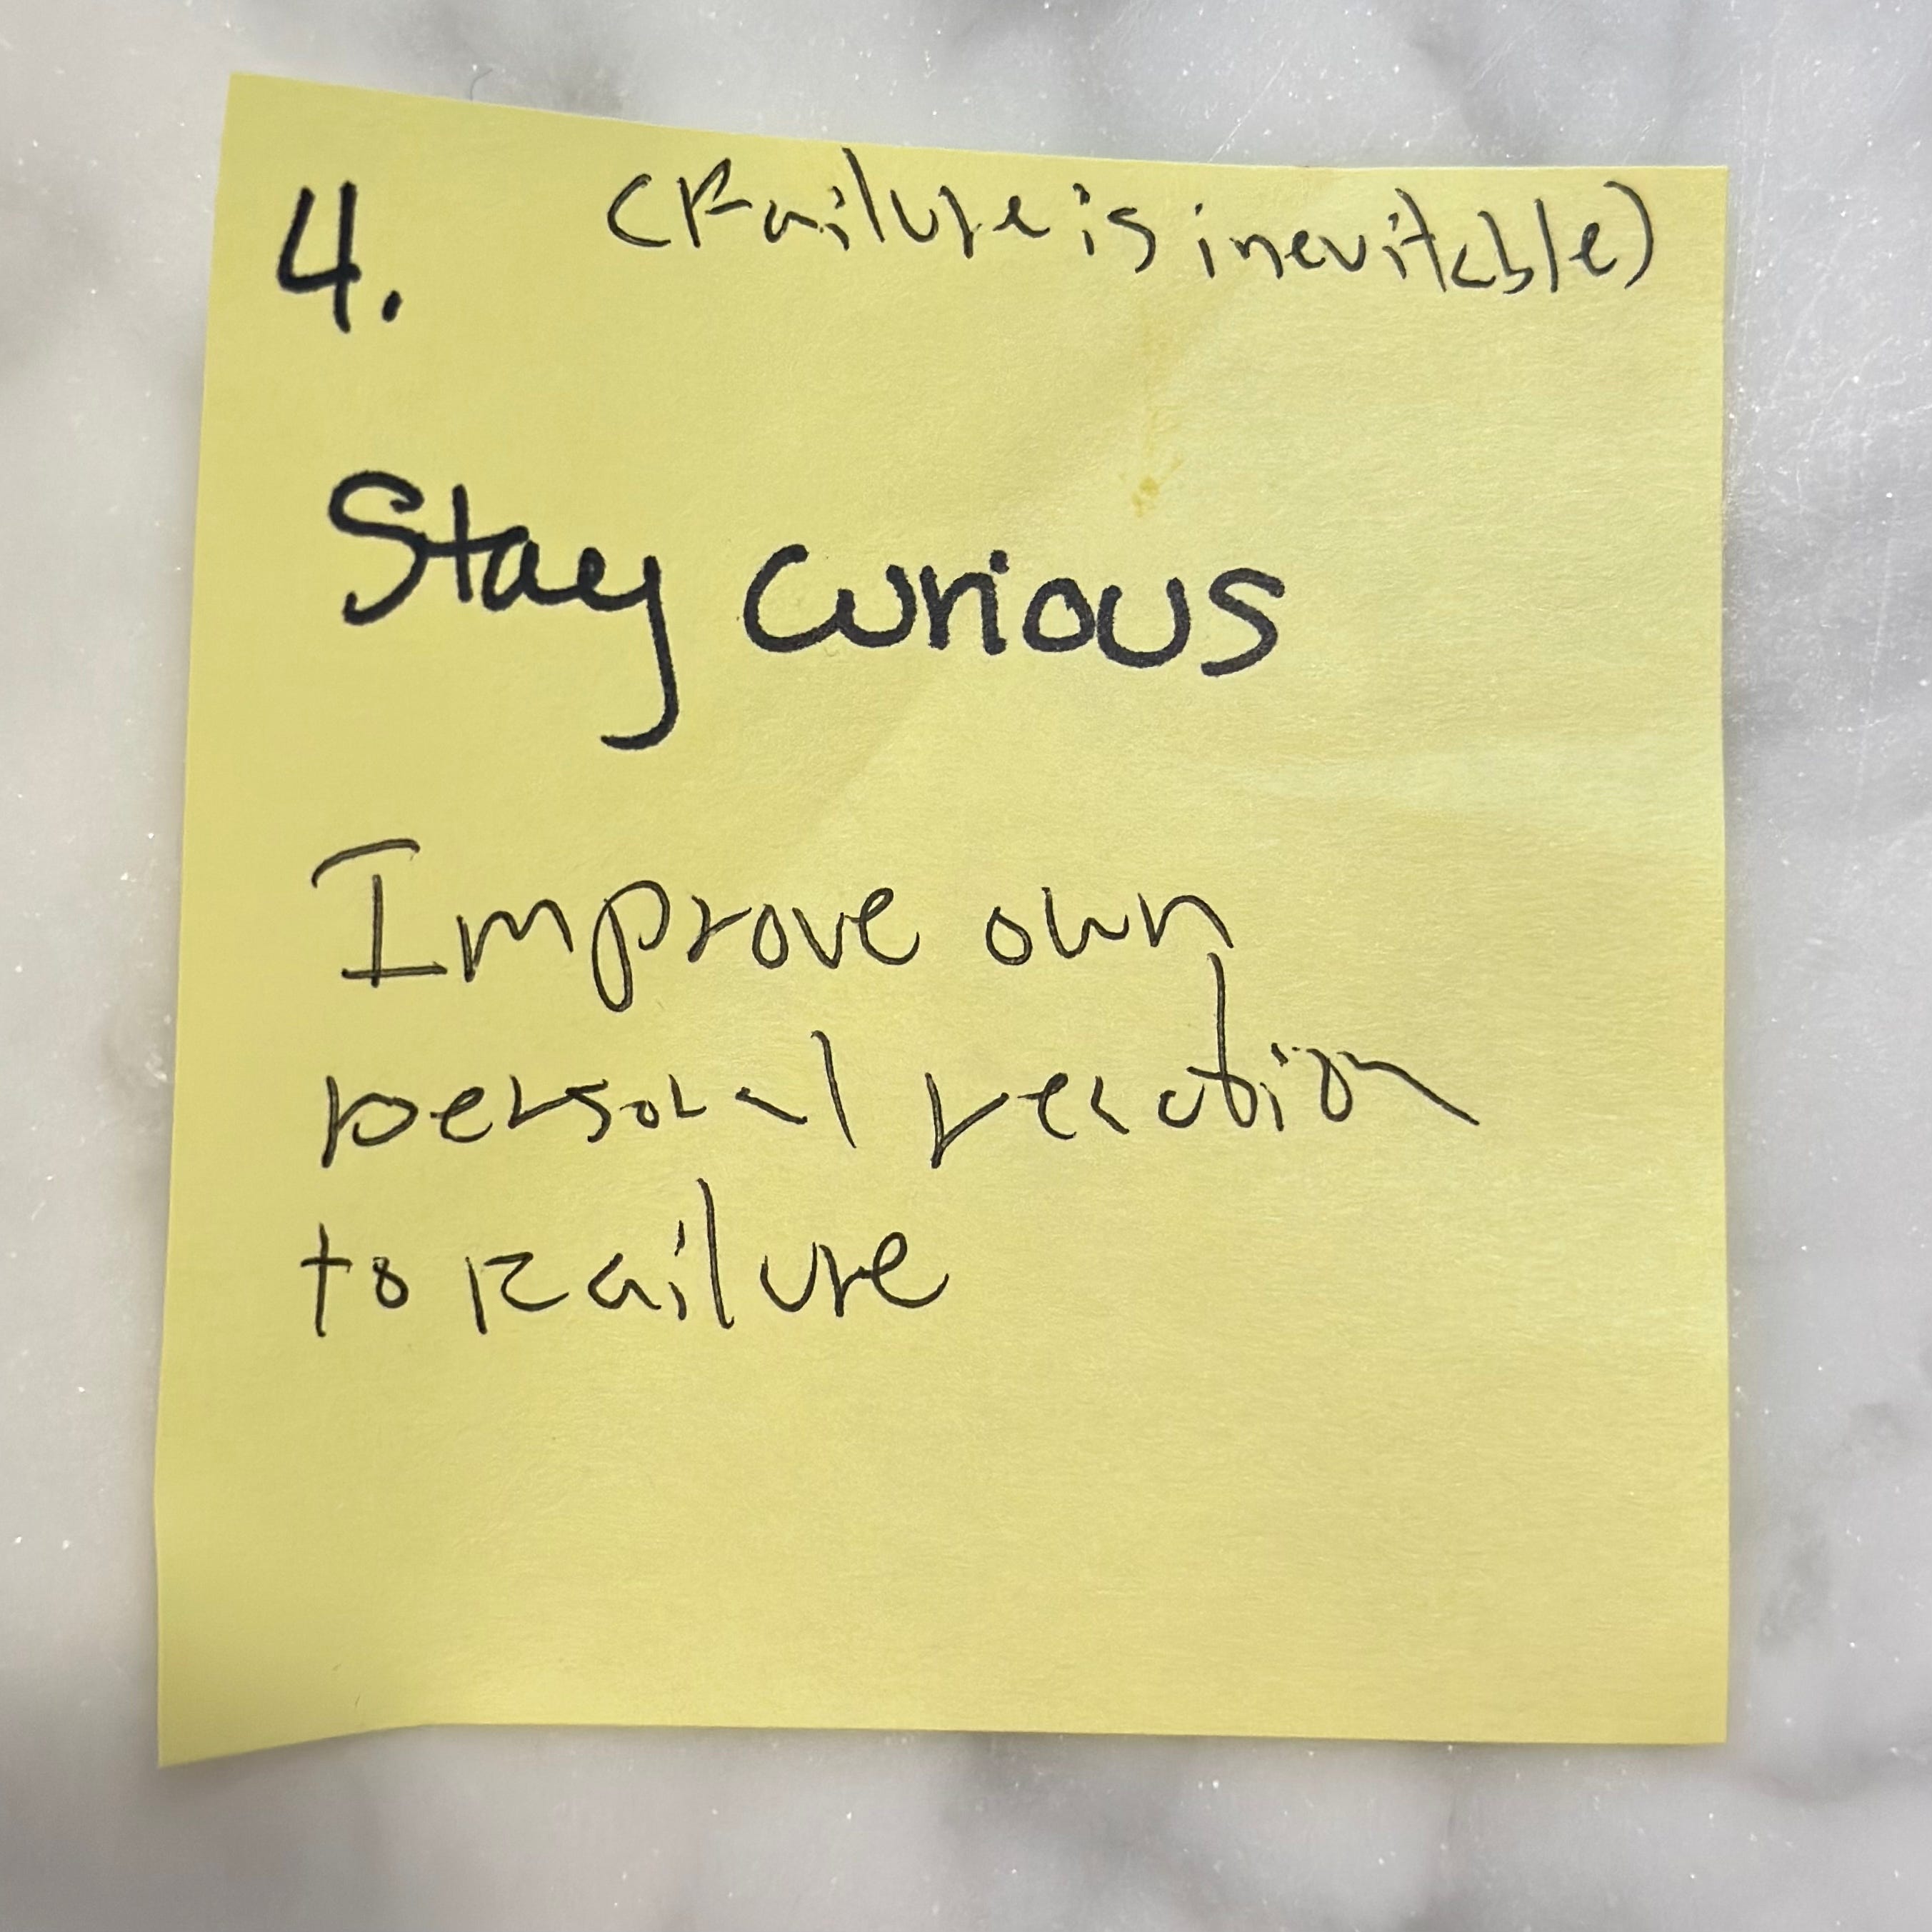 4. (Failure is inevitable)
Stay curious
Improve own
personal reaction
to Failure